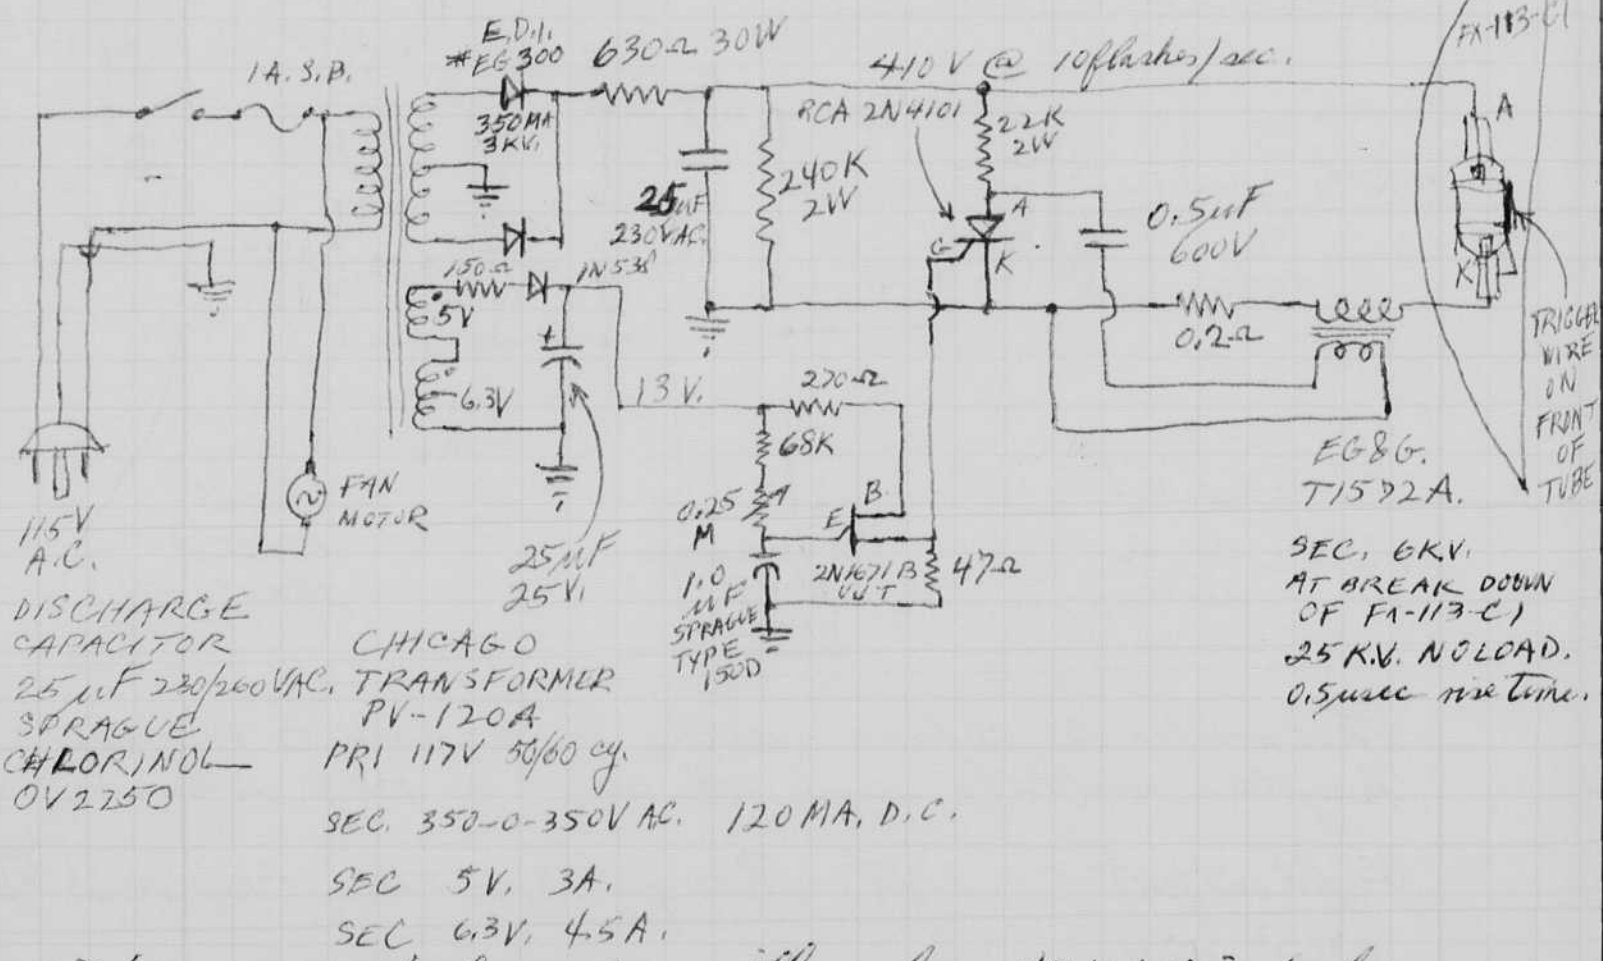 E.D.I.
#EG300
1 A. S. B.
350MA
3KV.
630Ω 30W
410 V @ 10 flashes/sec.
RCA 2N4101
22K
2W
FX-113-C1
A
25 µF
230VAC.
240K
2W
A
G
K
0.5µF
600V
K
TRIGGER
WIRE
ON
FRONT
OF
TUBE
150Ω
1N538
5V
+
6.3V
13V.
0.2Ω
270Ω
68K
0.25
M
E
B
2N1671B
UJT
47Ω
1.0
µF
SPRAGUE
TYPE
150D
25µF
25V.
FAN
MOTOR
115V
A.C.
EG&G.
T1572A.
SEC. 6K.V.
AT BREAK DOWN
OF FX-113-C1
25 K.V. NO LOAD.
0.5µsec rise time.
DISCHARGE
CAPACITOR
25 µF 230/260VAC.
SPRAGUE
CHLORINOL
OV2250
CHICAGO
TRANSFORMER
PV-120A
PRI 117V 50/60 cy.
SEC. 350-0-350V AC. 120 MA. D.C.
SEC 5V. 3A.
SEC 6.3V. 4.5A.